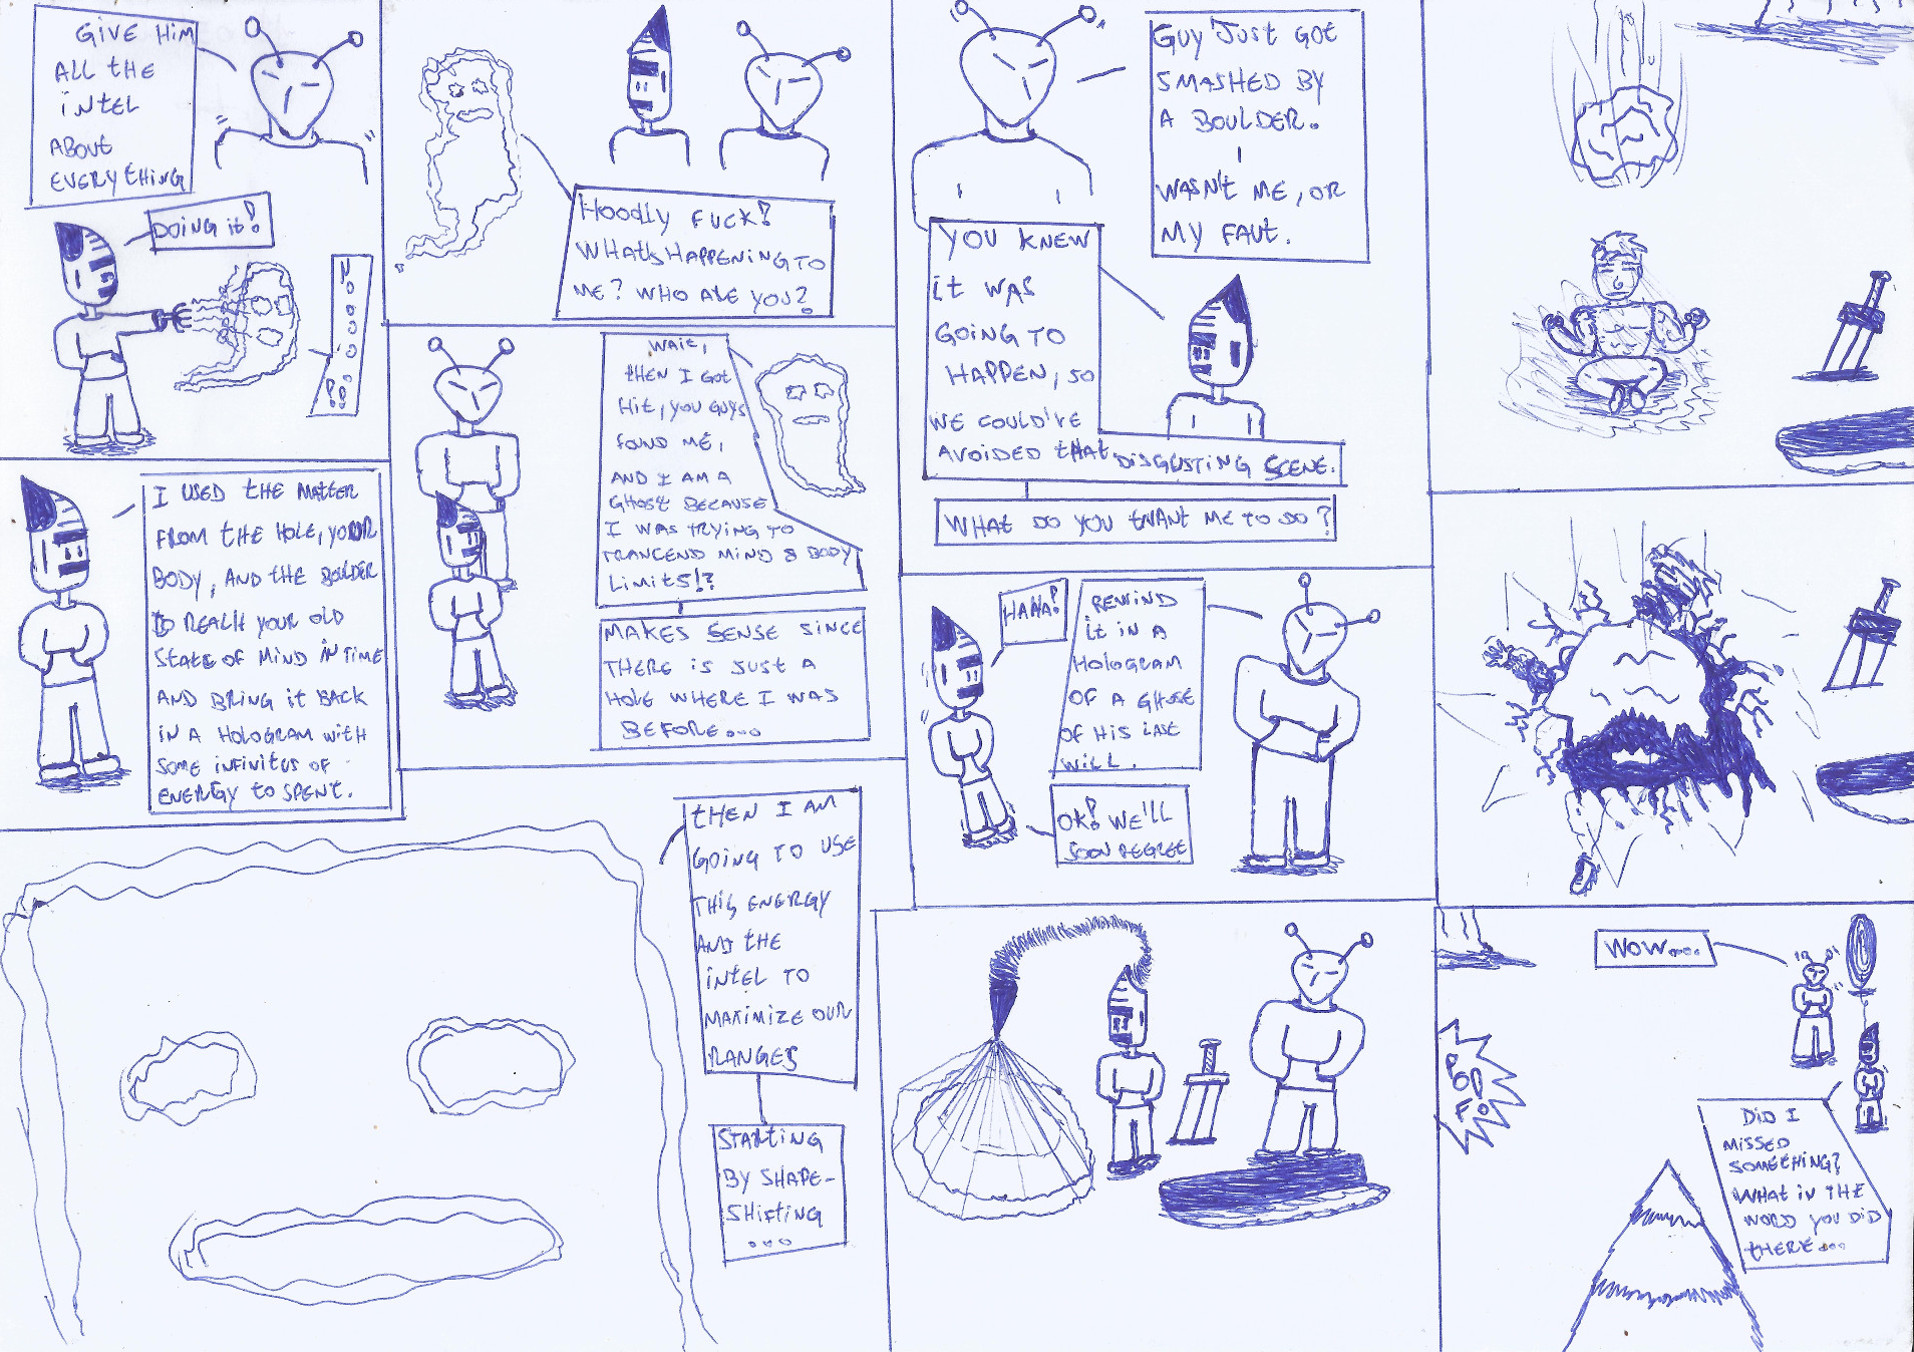 WOW....
POOF!
DID I
MISSED
SOMETHING?
WHAT IN THE
WORD YOU DID
THERE...
GUY JUST GOT
SMASHED BY
A BOULDER.
I
WASN'T ME, OR
MY FAUT.
YOU KNEW
IT WAS
GOING TO
HAPPEN, SO
WE COULD'VE
AVOIDED THAT DISGUSTING SCENE.
WHAT DO YOU WANT ME TO DO?
HAHA!
REWIND
IT IN A
HOLOGRAM
OF A GHOST
OF HIS LAST
WILL.
OK! WE'LL
SOON REGREE
HOODLY FUCK!
WHAT'S HAPPENING TO
ME? WHO ARE YOU?
WAIT,
THEN I GOT
HIT, YOU GUYS
FOUND ME,
AND I AM A
GHOST BECAUSE
I WAS TRYING TO
TRANCEND MIND & BODY
LIMITS!?
MAKES SENSE SINCE
THERE IS JUST A
HOLE WHERE I WAS
BEFORE...
GIVE HIM
ALL THE
INTEL
ABOUT
EVERYTHING
DOING IT!
NOOOO!!
I USED THE MATTER
FROM THE HOLE, YOUR
BODY, AND THE BOULDER
TO REACH YOUR OLD
STATE OF MIND IN TIME
AND BRING IT BACK
IN A HOLOGRAM WITH
SOME INFINITES OF
ENERGY TO SPENT.
THEN I AM
GOING TO USE
THIS ENERGY
AND THE
INTEL TO
MAXIMIZE OUR
RANGES
STARTING
BY SHAPE-
SHIFTING
...